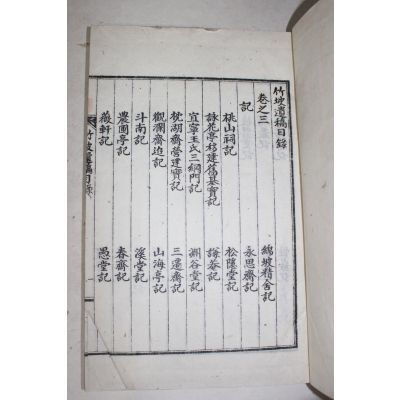 竹坡遺稿目錄
卷之三 綿坡精舍記
記 永思齋記
桃山祠記 松隱堂記
詠花亭移建舊基實記 謙菴記
宜寧玉氏三綱門記 淵谷堂記
枕湖齋營建實記 三遷齋記
觀瀾齋追記 山海亭記
斗南記 溪堂記
農圃亭記 春齋記
薇軒記 愚堂記
竹坡遺稿目錄